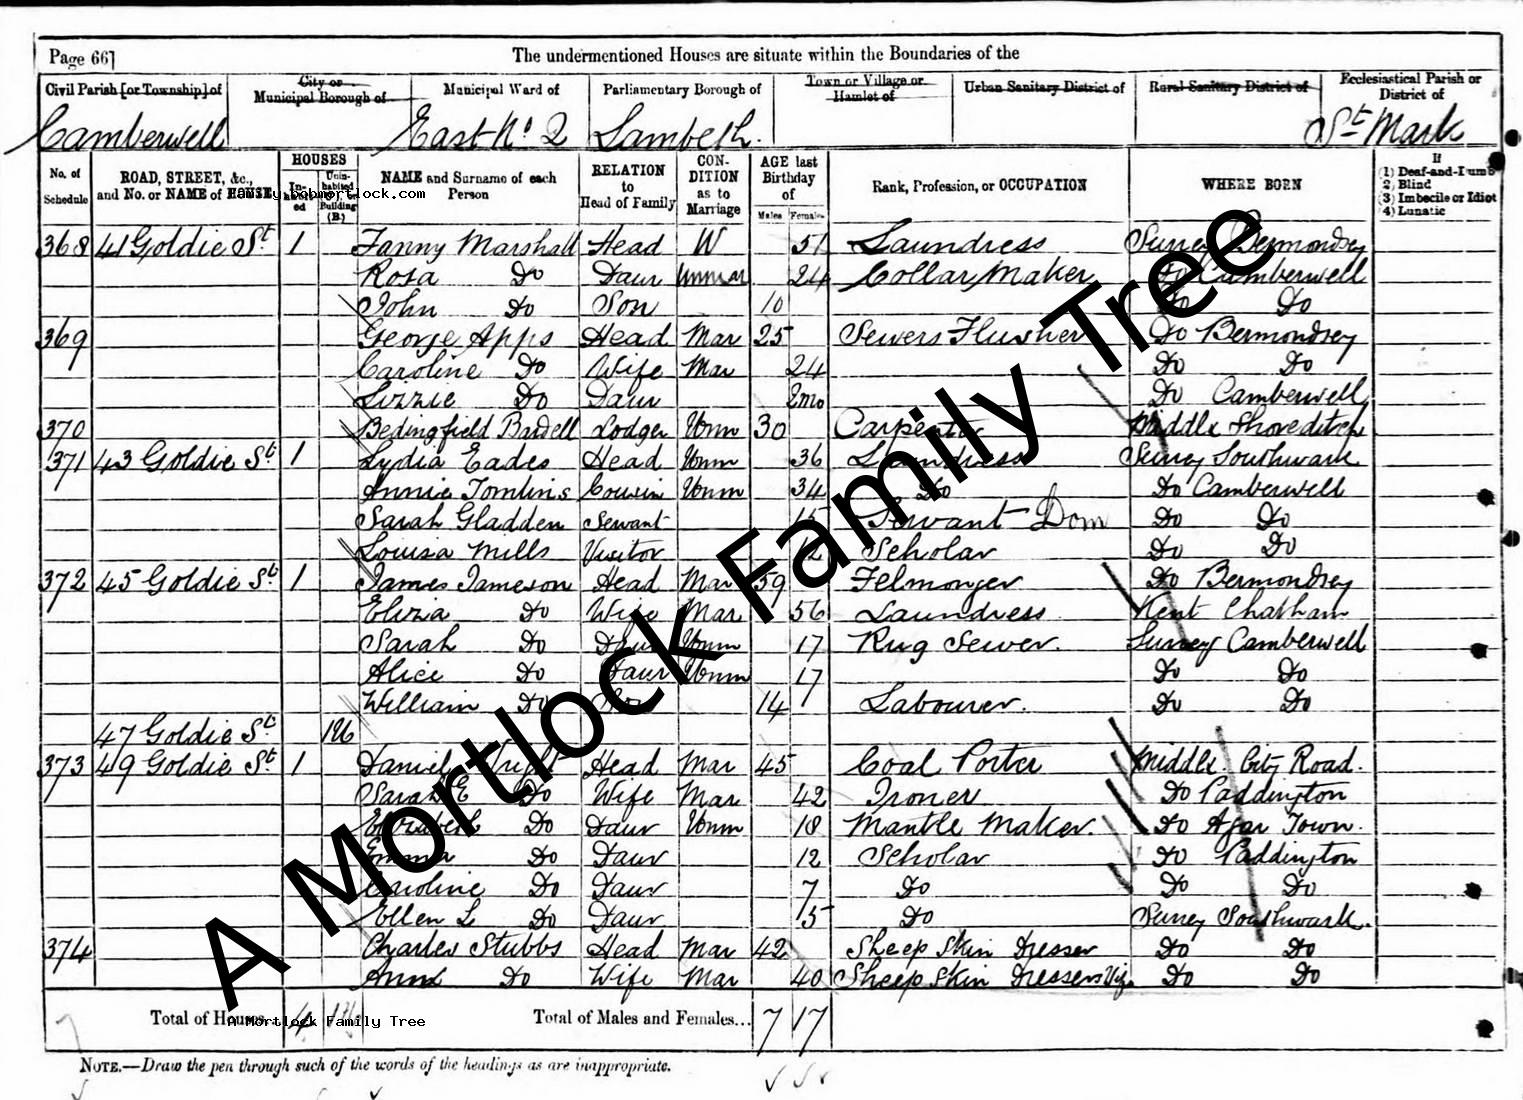 Page 66]
The undermentioned Houses are situate within the Boundaries of the
Civil Parish [or Township] of City or Municipal Borough of Municipal Ward of Parliamentary Borough of Town or Village or Hamlet of Urban Sanitary District of Rural Sanitary District of Ecclesiastical Parish or District of
Camberwell East No. 2 Lambeth. St Mark
No. of Schedule ROAD, STREET, &c., and No. or NAME of HOUSE HOUSES In-habited Unin-habited Building (B.) NAME and Surname of each Person RELATION to Head of Family CON-DITION as to Marriage AGE last Birthday of Males Females Rank, Profession, or OCCUPATION WHERE BORN If (1) Deaf-and-Dumb (2) Blind (3) Imbecile or Idiot (4) Lunatic
family.bobmortlock.com
368 41 Goldie St 1 Fanny Marshall Head W 51 Laundress Surrey Bermondsey
Rosa Do Daur Unmar 24 Collar Maker Do Camberwell
John Do Son 10 Do Do
369 George Apps Head Mar 25 Sewers Flusher Do Bermondsey
Caroline Do Wife Mar 24 Do Do
Lizzie Do Daur 2mo Do Camberwell
370 Bedingfield Bardell Lodger Unm 30 Carpenter Middlx Shoreditch
371 43 Goldie St 1 Lydia Eades Head Unm 36 Laundress Surrey Southwark
Annie Tomlins Cousin Unm 34 Do Do Camberwell
Sarah Gladden Servant 15 Servant Dom Do Do
Louisa Mills Visitor 12 Scholar Do Do
372 45 Goldie St 1 James Jameson Head Mar 59 Felmonger Do Bermondsey
Eliza Do Wife Mar 56 Laundress Kent Chatham
Sarah Do Daur Unm 17 Rug Sewer. Surrey Camberwell
Alice Do Daur Unm 17 Do Do
William Do Son 14 Labourer. Do Do
47 Goldie St 1U
373 49 Goldie St 1 Daniel Wright Head Mar 45 Coal Porter Middlx City Road.
Sarah E Do Wife Mar 42 Ironer Do Paddington
Elizabeth Do Daur Unm 18 Mantle Maker. Do Agar Town.
Emma Do Daur 12 Scholar Do Paddington
Caroline Do Daur 7 Do Do Do
Ellen L Do Daur 5 Do Surrey Southwark.
374 Charles Stubbs Head Mar 42 Sheep Skin Dresser Do Do
Ann Do Wife Mar 40 Sheep Skin Dressers Do Do
Total of Houses 4 1U Total of Males and Females... 7 17
A Mortlock Family Tree
NOTE.—Draw the pen through such of the words of the headings as are inappropriate.
A Mortlock Family Tree